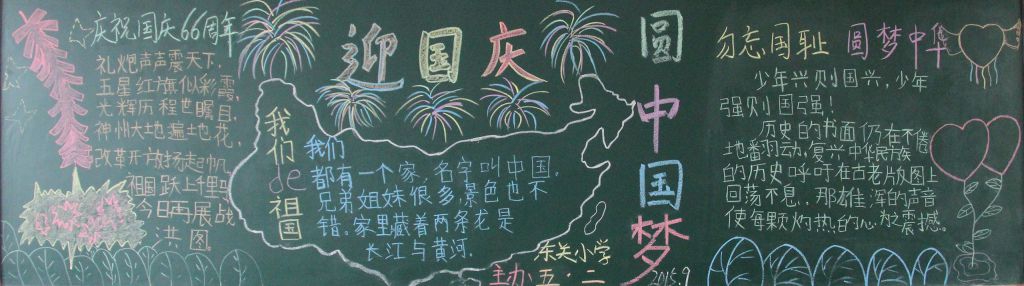 庆祝国庆66周年
礼炮声声震天下,
五星红旗似彩霞,
光辉历程世瞩目,
神州大地遍地花,
改革开放扬起帆
祖国跃上
今日再展战
洪图
迎国庆
我们de祖国
我们
都有一个家,名字叫中国,
兄弟姐妹很多,景色也不
错。家里藏着两条龙是
长江与黄河.
小学
主办 五·二
圆中国梦
2015.9
勿忘国耻 圆梦中华
少年兴则国兴,少年
强则国强!
历史的书面仍在不倦
地翻动,复兴中华民族
的历史呼吁在古老版图上
回荡不息. 那雄浑的声音
使每颗灼热的心为之震撼。